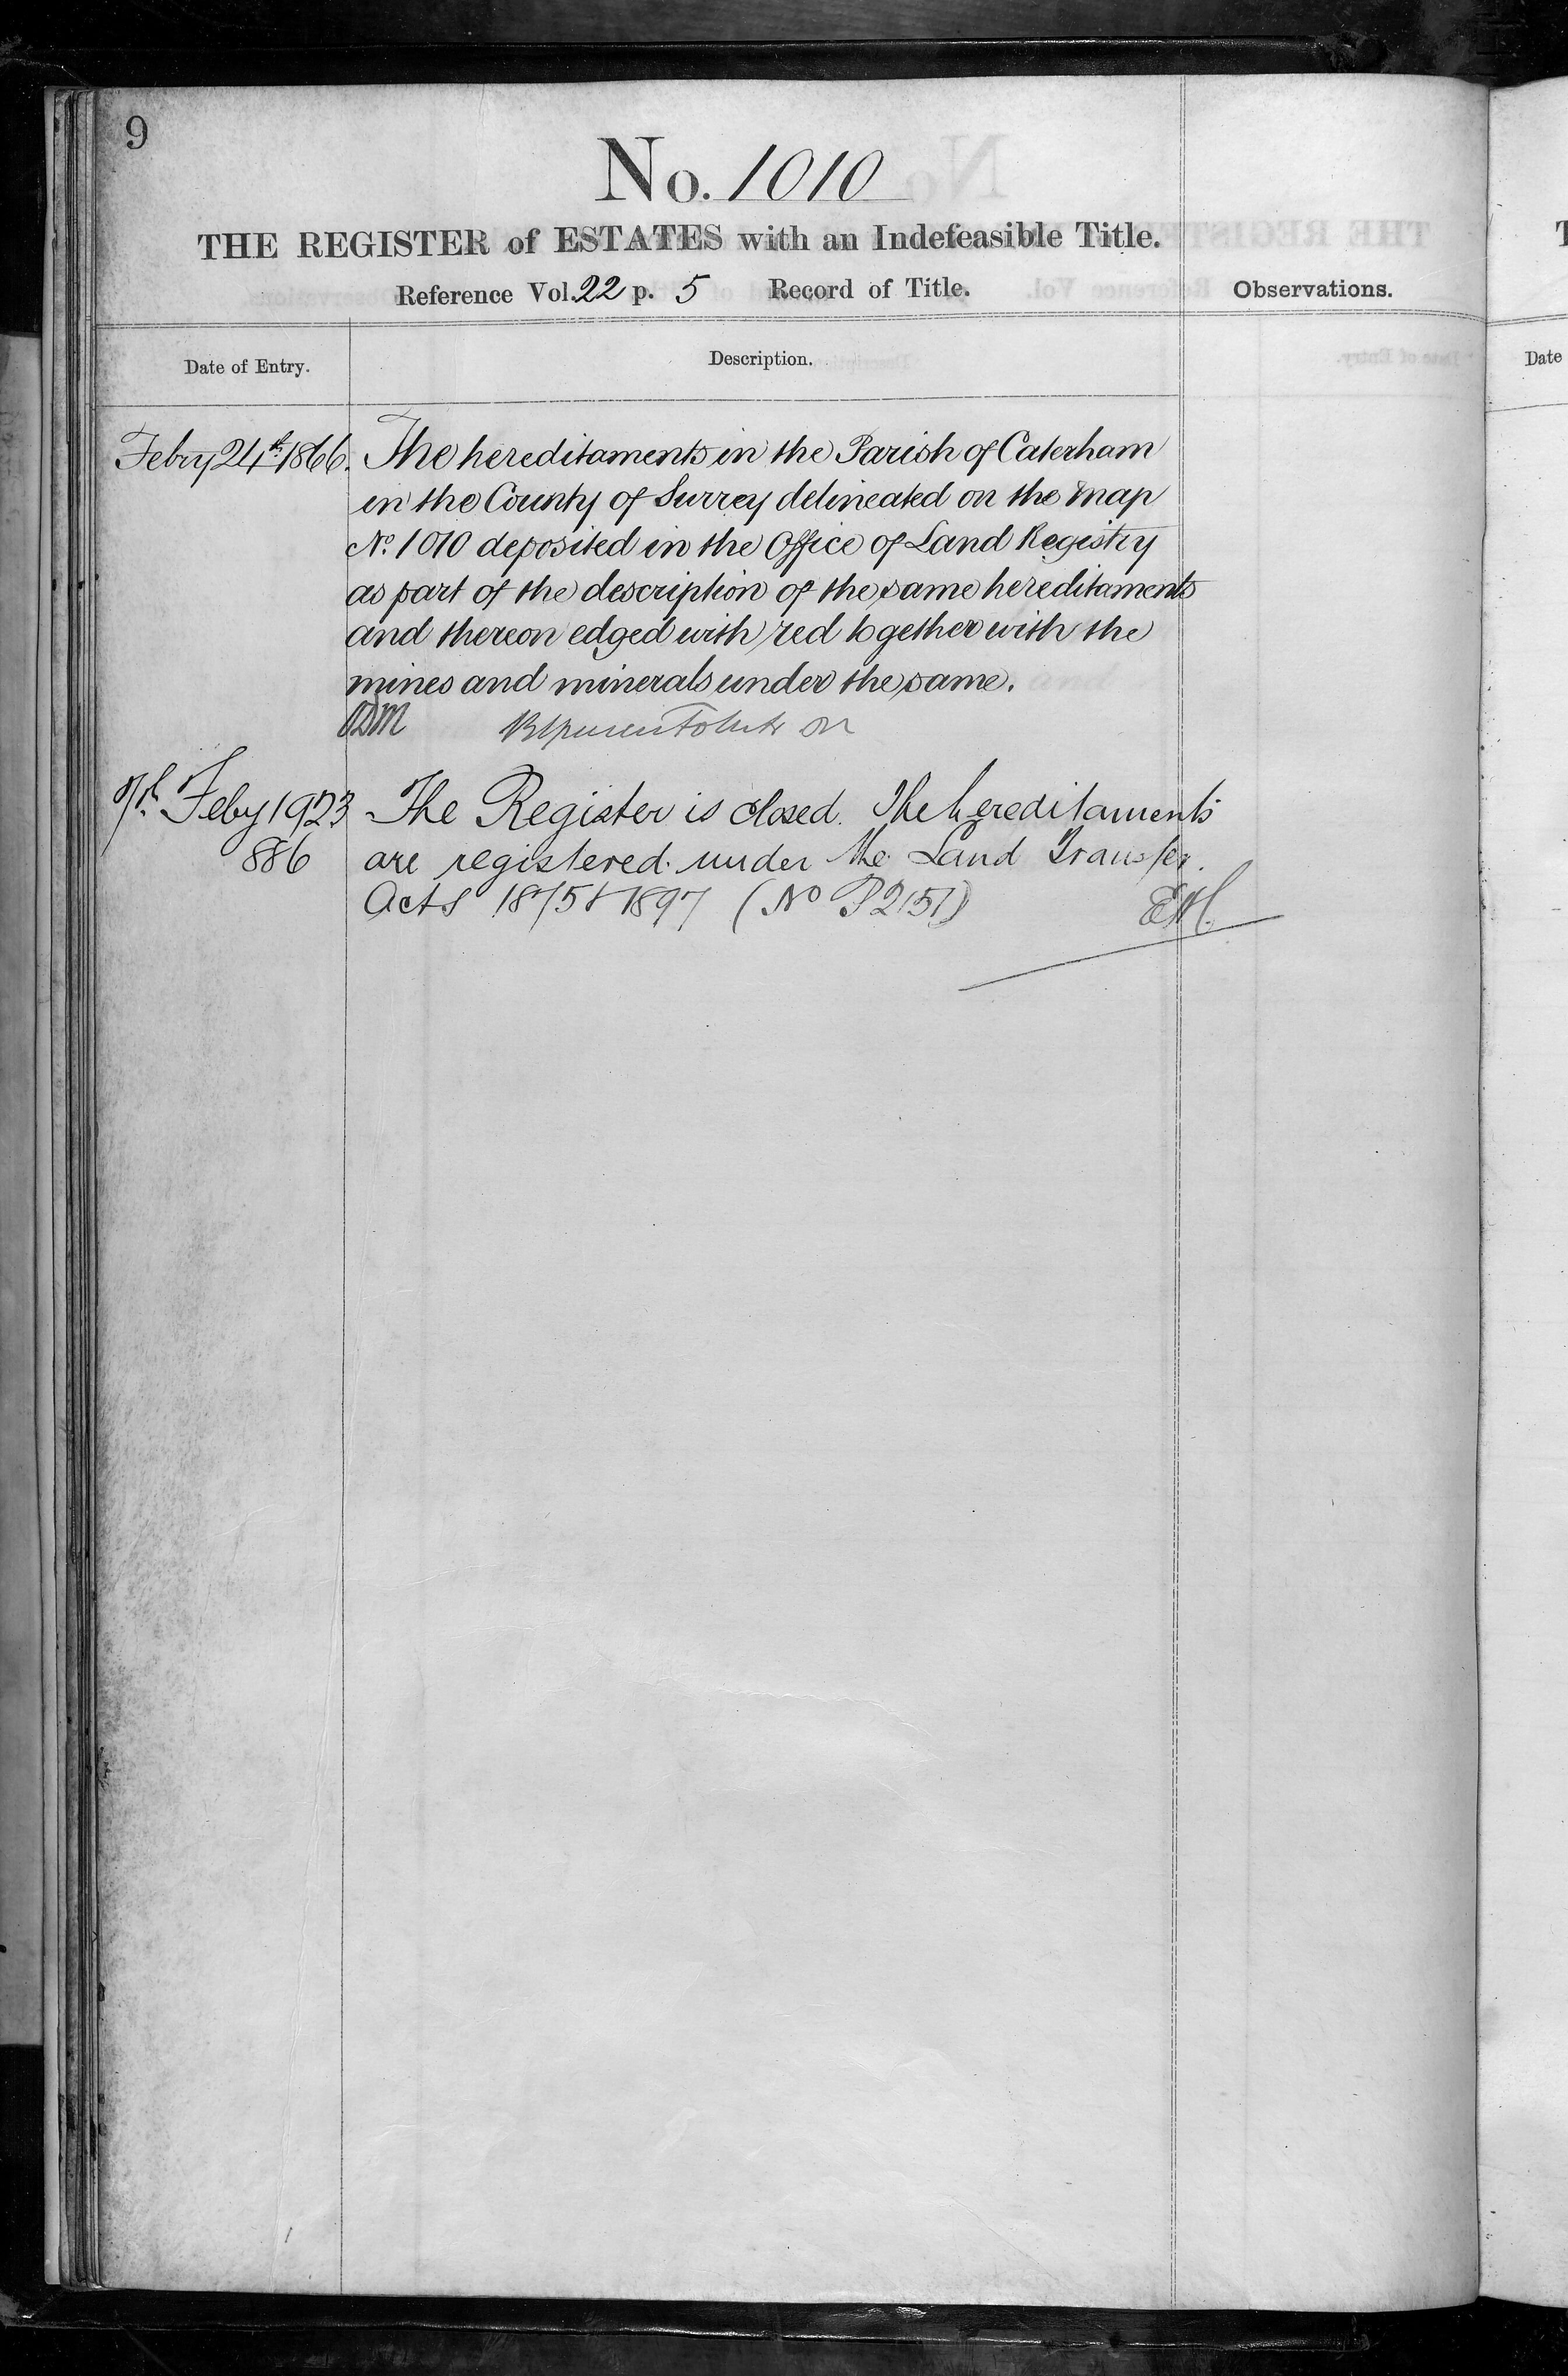 9
No. 1010
THE REGISTER of ESTATES with an Indefeasible Title.
Reference Vol. 22 p. 5 Record of Title.
Observations.
Date of Entry.
Description.
Febry 24th 1866.
The hereditaments in the Parish of Caterham
in the County of Surrey delineated on the Map
No. 1010 deposited in the Office of Land Registry
as part of the description of the same hereditaments
and thereon edged with red together with the
mines and minerals under the same.
7th Feby 1923
886
The Register is closed. The hereditaments
are registered under the Land Transfer
Acts 1875 & 1897 (No P2151)
Date